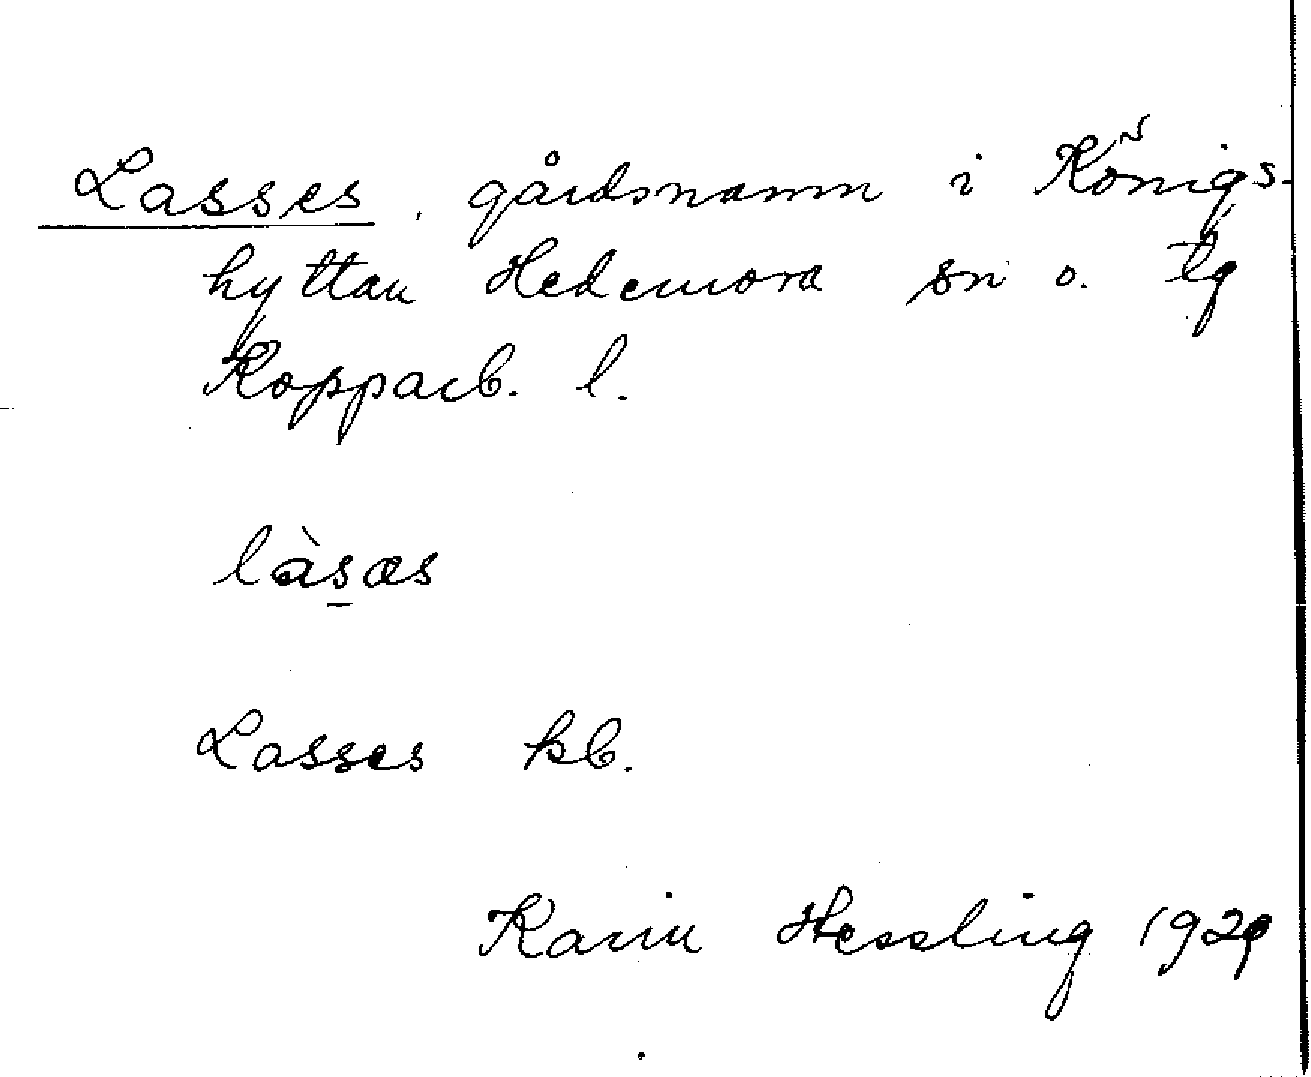 Lasses, gårdsnamn i Königs-
hyttan Hedemora sn o. tg
Kopparb. l.
làsas
Lasses kb.
Karin Hessling 1929